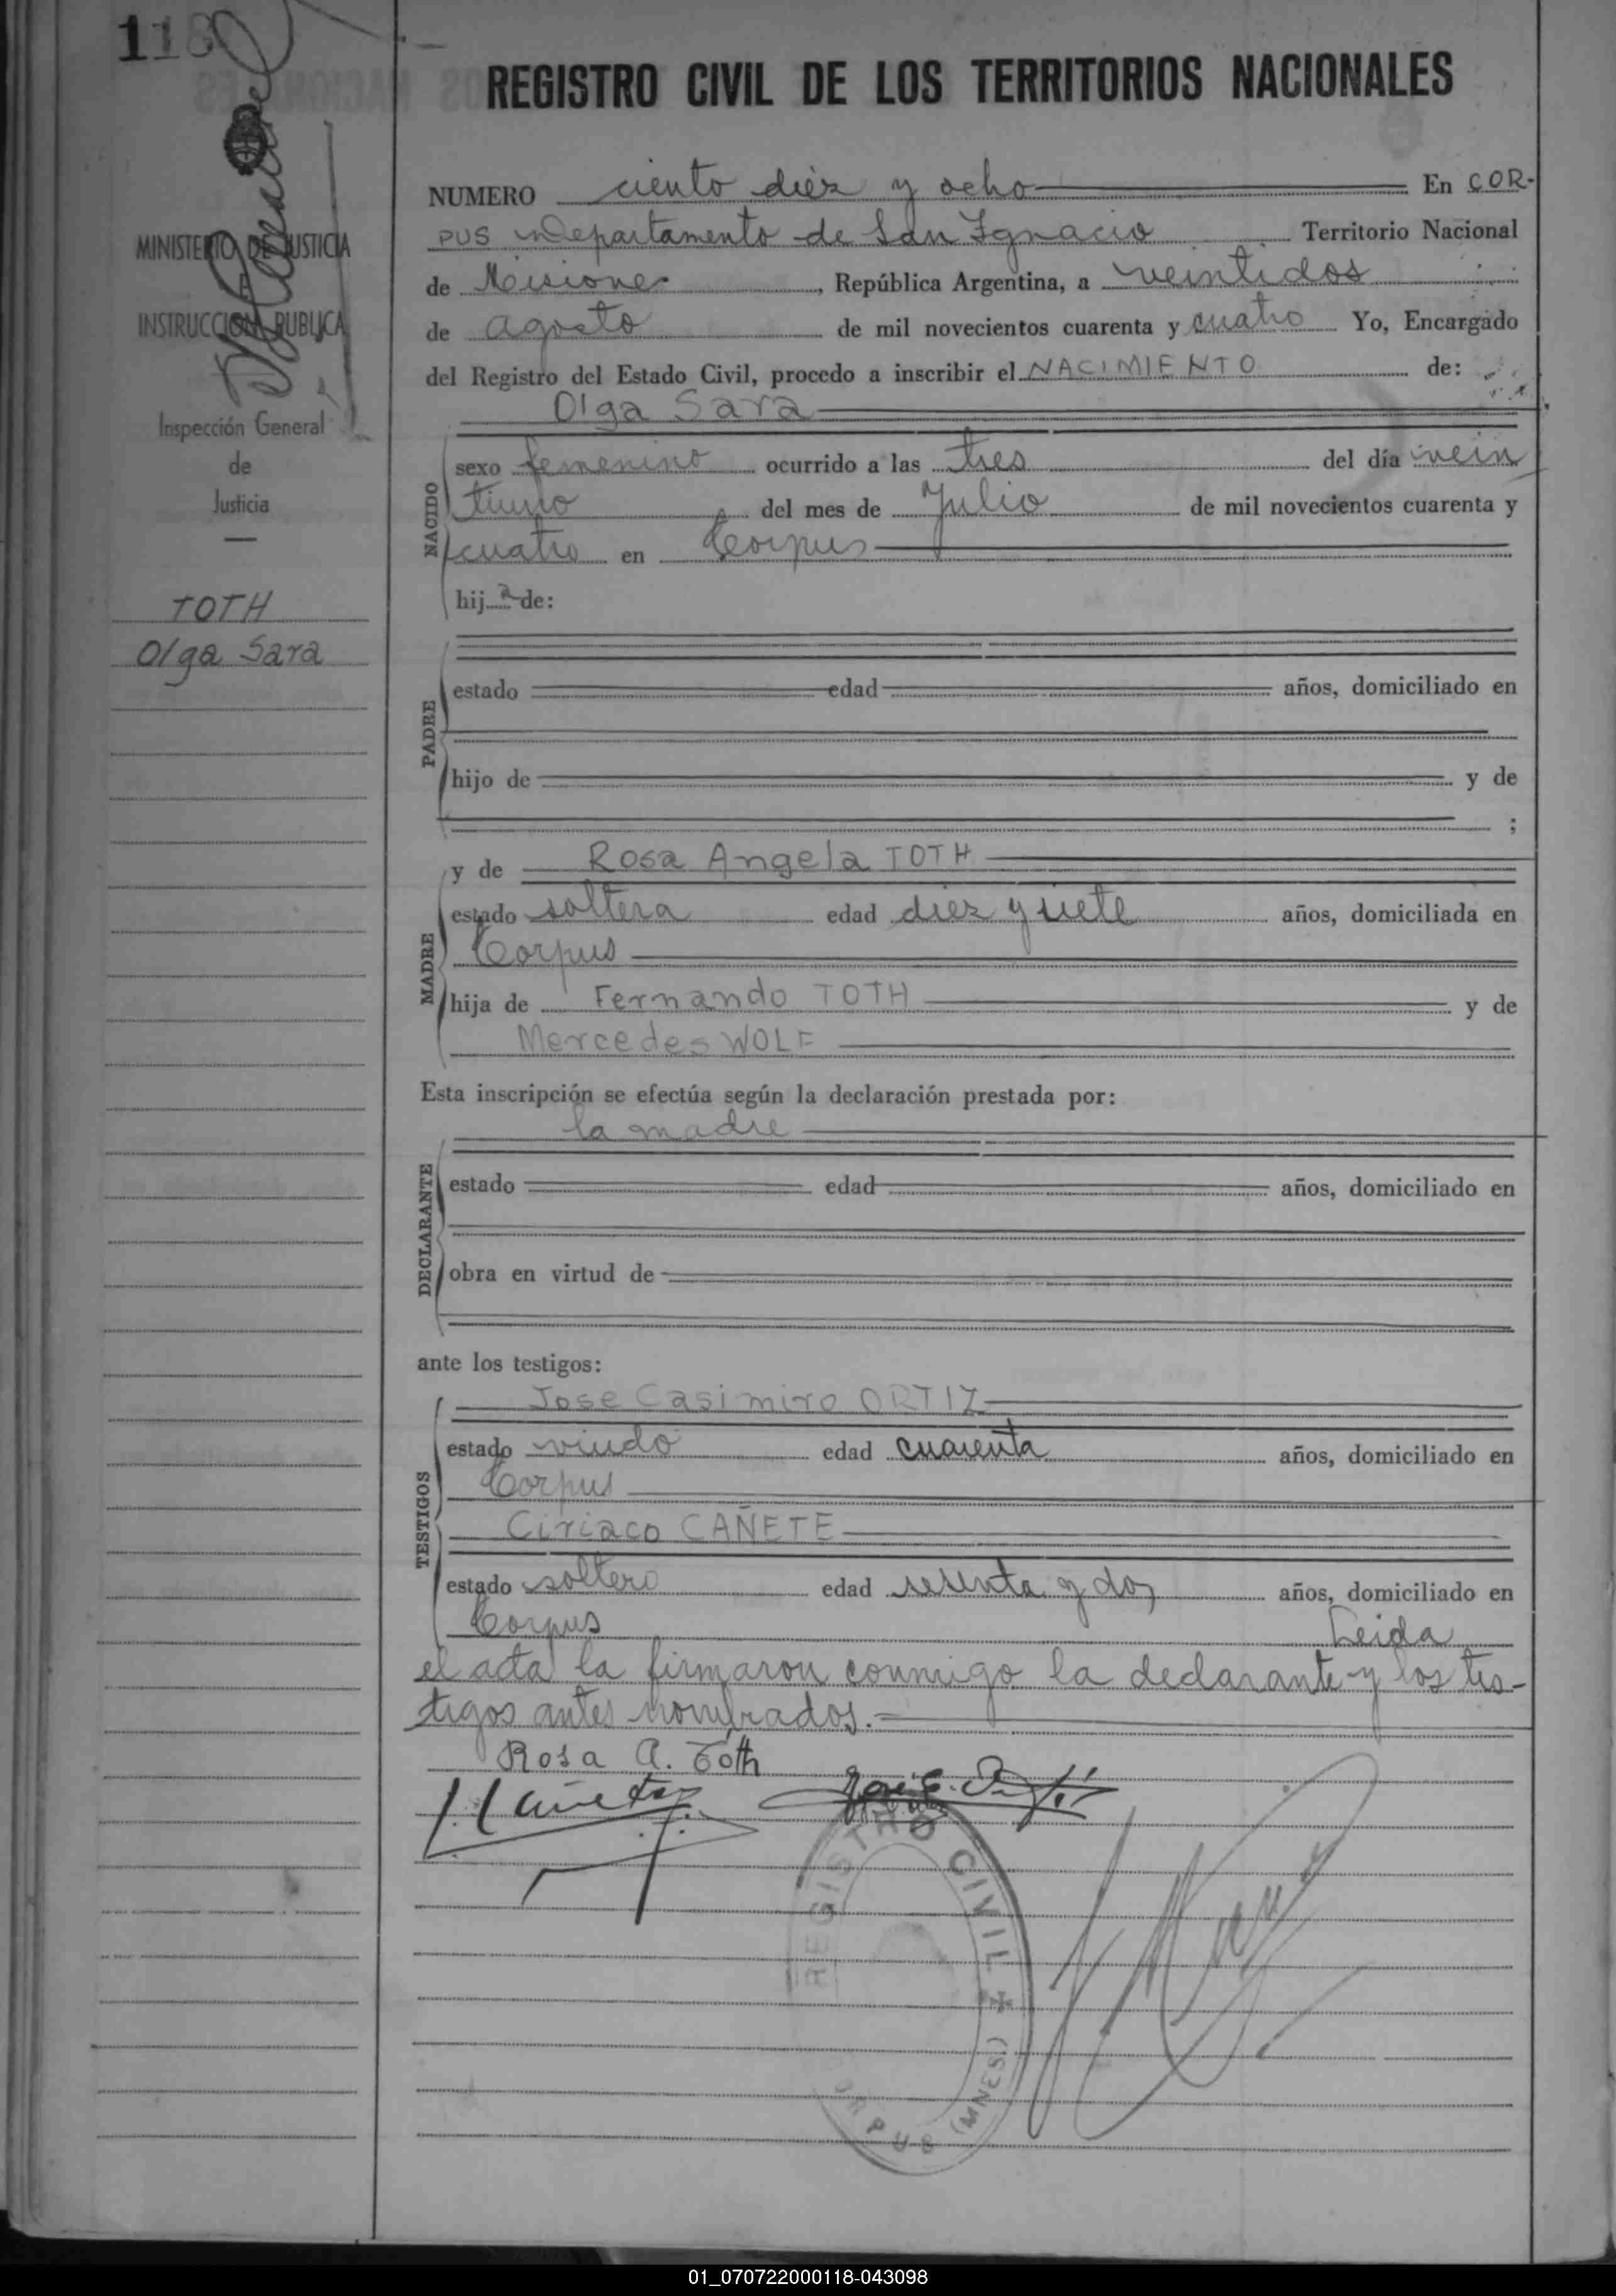 118
REGISTRO CIVIL DE LOS TERRITORIOS NACIONALES
MINISTERIO DE JUSTICIA
INSTRUCCION PUBLICA
Inspección General
de
Justicia
TOTH
Olga Sara
NUMERO ciento diez y ocho En COR-
PUS Departamento de San Ignacio Territorio Nacional
de Misiones, República Argentina, a veintidos
de agosto de mil novecientos cuarenta y cuatro Yo, Encargado
del Registro del Estado Civil, procedo a inscribir el NACIMIENTO de:
Olga Sara
NACIDO
sexo femenino ocurrido a las tres del día vein
tiuno del mes de Julio de mil novecientos cuarenta y
cuatro en Corpus
hija de:
PADRE
estado edad años, domiciliado en
hijo de y de
;
MADRE
y de Rosa Angela TOTH
estado soltera edad diez y siete años, domiciliada en
Corpus
hija de Fernando TOTH y de
Mercedes WOLF
Esta inscripción se efectúa según la declaración prestada por:
la madre
DECLARANTE
estado edad años, domiciliado en
obra en virtud de
ante los testigos:
TESTIGOS
Jose Casimiro ORTIZ
estado viudo edad cuarenta años, domiciliado en
Corpus
Ciriaco CAÑETE
estado soltero edad sesenta y dos años, domiciliado en
Corpus Leida
el acta la firmaron conmigo la declarante y los tes-
tigos antes nombrados.-
Rosa A. Tóth
REGISTRO CIVIL
CORPUS (MNES)
01_070722000118-043098